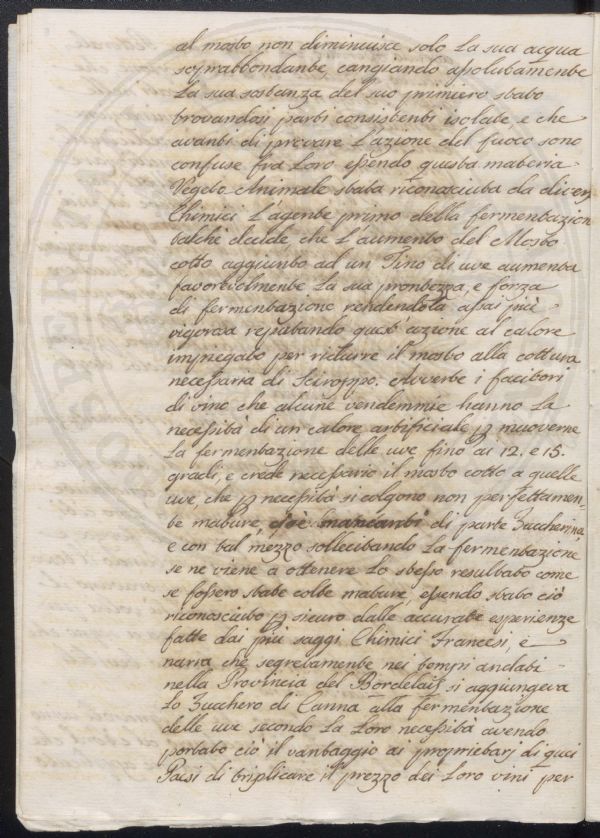 al mosto non diminuisce solo la sua acqua
soprabbondante, cangiando assolutamente
la sua sostanza del suo primiero stato
trovandosi parti consistenti isolate, e che
avanti di provare l'azione del fuoco sono
confuse fra loro essendo questa materia
Vegeto Animale stata riconosciuta da diversi
Chimici l'agente primo della fermentazion
talchè decide, che l'aumento del Mosto
cotto aggiunto ad un Tino di uve aumenta
favorevolmente la sua prontezza, e forza
di fermentazione rendendola assai più
vigorosa reputando quest'azione al calore
impiegato per ridurre il mosto alla cottura
necessaria di Sciroppo. Avverte i facitori
di vino che alcune vendemmie hanno la
necessità di un calore artificiale p muoverne
la fermentazione delle uve fino ai 12. e 15.
gradi, e crede necessario il mosto cotto a quelle
uve, che p necessità si colgono non perfettamen-
te mature, cioè mancanti di parte Zuccherina
e con tal mezzo sollecitando la fermentazione
se ne viene a ottenere lo stesso resultato come
se fossero state colte mature, essendo stato ciò
riconosciuto p sicuro dalle accurate esperienze
fatte dai più saggi Chimici Francesi, e
narra che segretamente nei tempi andati
nella Provincia del Bordelais si aggiungeva
lo Zucchero di Canna alla fermentazione
delle uve secondo la loro necessità avendo
portato ciò il vantaggio ai proprietarj di quei
Paesi di triplicare il prezzo dei loro vini per